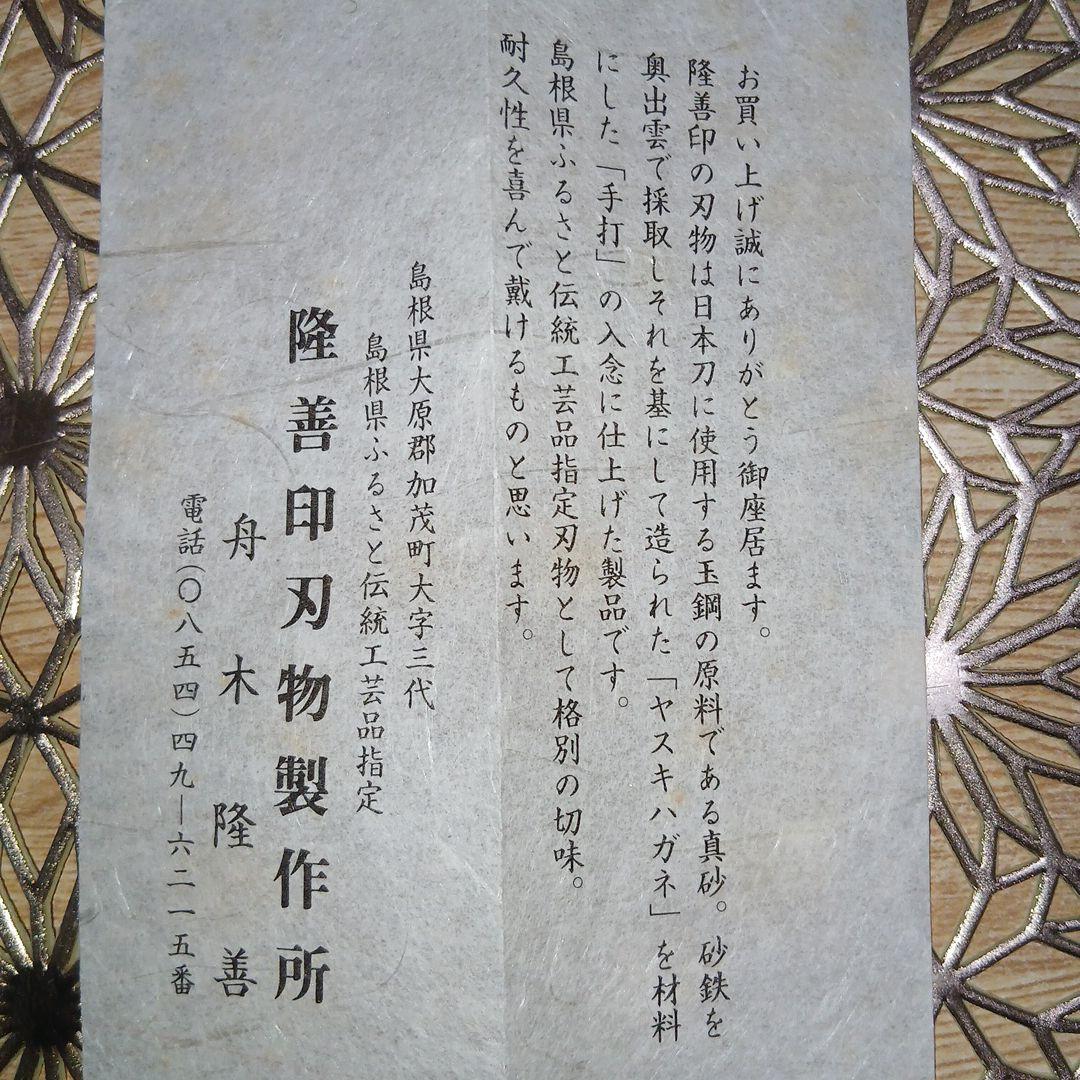 お買い上げ誠にありがとう御座居ます。
隆善印の刃物は日本刀に使用する玉鋼の原料である真砂。砂鉄を
奥出雲で採取しそれを基にして造られた「ヤスキハガネ」を材料
にした「手打」の入念に仕上げた製品です。
島根県ふるさと伝統工芸品指定刃物として格別の切味。
耐久性を喜んで戴けるものと思います。
島根県大原郡加茂町大字三代
島根県ふるさと伝統工芸品指定
隆善印刃物製作所
舟木隆善
電話(〇八五四)四九―六二一五番